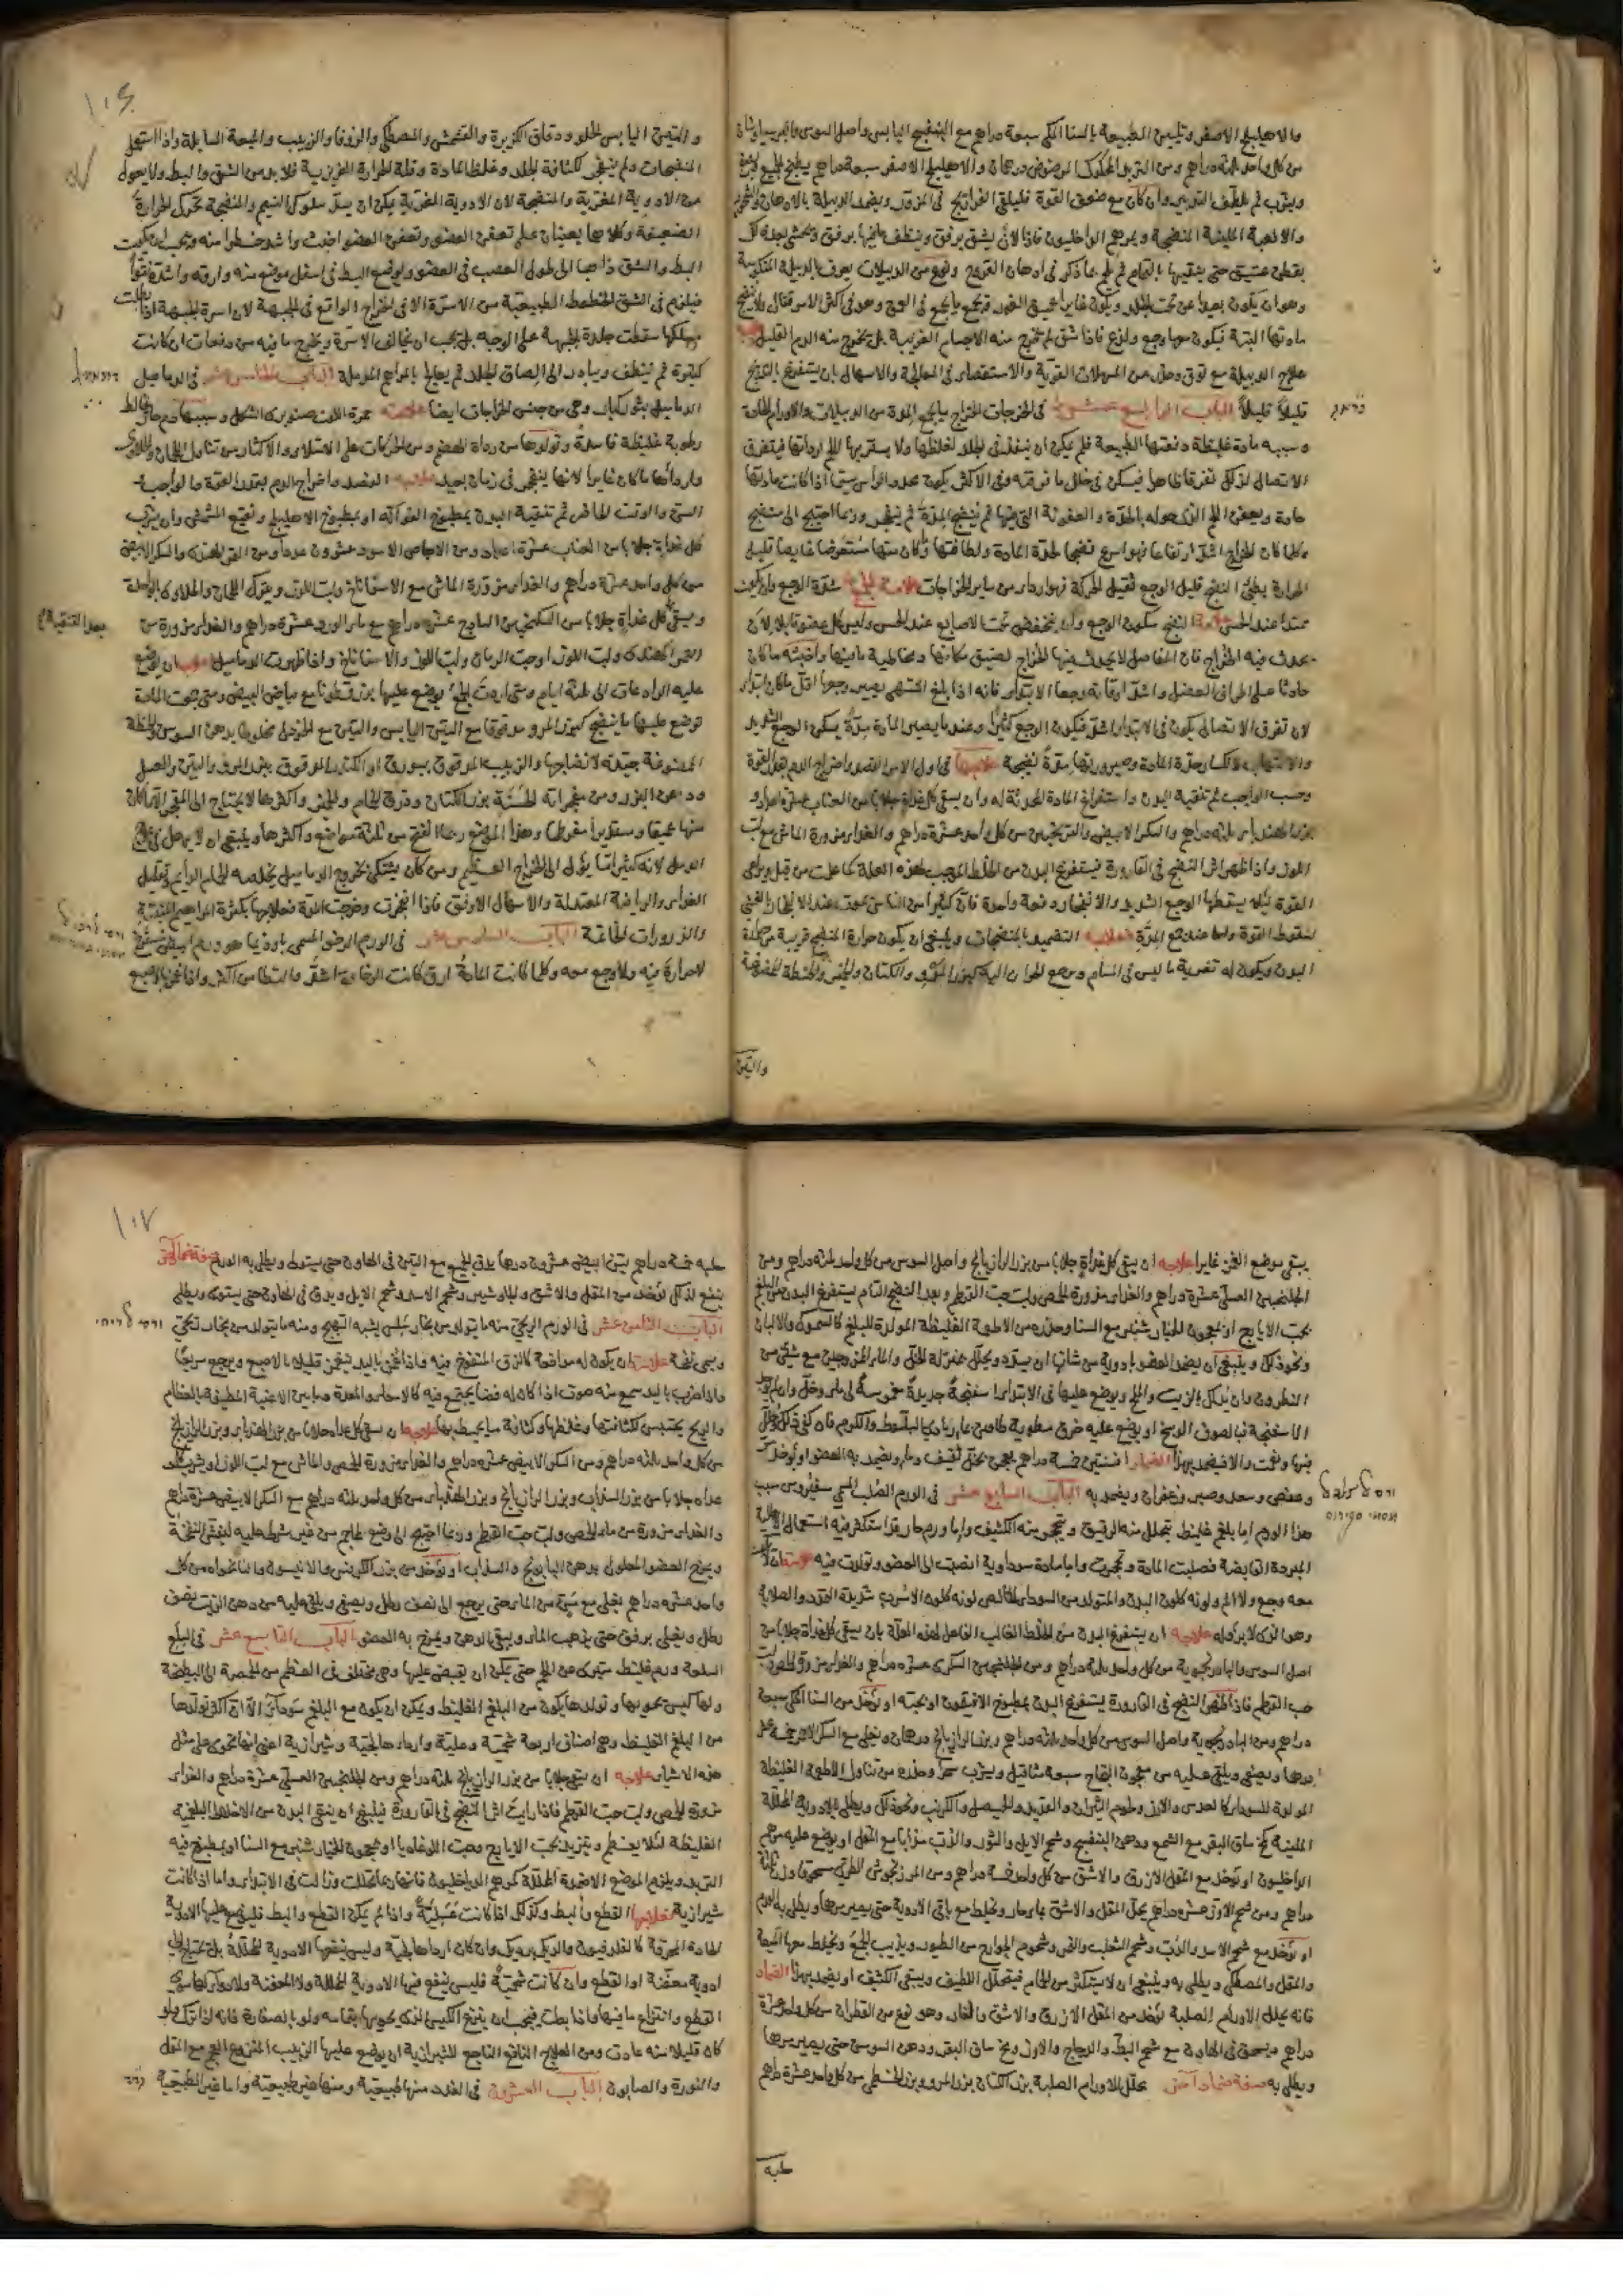 والاهليلج الاصفر وتليين الطبيعة بالسنا المكي سبعة دراهم مع البنفسج اليابس واصل السوس
من كل واحد ثلثة دراهم ومن التربد المحكوك المرضوض درهمان والاهليلج الاصفر سبعة دراهم يطبخ الجميع
ويشرب ثم يلطف التدبير وان كان مع ضعف القوة فليلق الفراريج في المزور ويضمد الدبيلة بالادهان
والالعبة الملينة المنضجة وبمرهم الداخليون فاذا لان يشق برفق وينظف ما فيها برفق ويحشى بعد ذلك
بقطن عتيق حتى ينقيها بالتمام ثم يلحم بما ذكر في ادهان القروح ونوع من الدبيلات يعرف بالدبيلة المنكوسة
وهو ان يكون بعيدا عن تحت الجلد ويكون غايرا عميق الغور
مادتها البتة فيكون معها وجع ولذع فاذا شق لم تخرج منه الاجسام الغريبة بل يخرج منه الدم القليل
علاج الدبيلة مع توق وحذر من المسهلات القوية والاستقصاء في المعالجة والاسهال بان يستفرغ بالتدريج
قليلاً قليلاً الباب الرابع عشر في الخراجات الخراج ما يجمع المدة من الدبيلات والاورام الحادة
وسببه مادة غليظة دفعتها الطبيعة فلم يمكن ان ينفذ في الجلد لغلظها ولا يستريها اللحم لرداتها فيتفرق
الاتصال لذلك تفرقا ظاهرا فيسكن في خلل ما فرقته وفي الاكثر يكون محدد الراس سيما اذا كانت مادتها
حادة ويعفن اللحم الذي حوله بالحدة والعفونة التي فيها ثم ينضج المدة ثم ينفجر وربما احتيج الى منضج
وكلما كان الخراج اشد ارتفاعا فهو اسرع نضجا لحدة المادة ولطافتها وكان منها مستعرضا غايصا قليل
الحرارة بطئ النضج قليل الوجع ثقيل الحركة فهو اردا من ساير الخراجات علامة الجمع شدة الوجع وان يكون
ممتدا عند الجس علامة النضج سكون الوجع وان ينخفض تحت الاصابع عند الجس وليس كل عضو قابلا لان
يحدث فيه الخراج فان المفاصل لا يحدث فيها الخراج لضيق مكانها ومخاطية ما فيها واخبثه ما كان
حادثا على المراق العضل واشد اوقاته وجعا الابتداء فانه اذا بلغ المنتهى يصير وجعه اقل مما كان ابتداء
لان تفرق الاتصال يكون في الابتداء اشد فيكون الوجع كثيرا وعندما يصير المادة مدة يسكن الوجع الشديد
والالتهاب لانكسار حدة المادة وصيرورتها مدة نضيجة علاجها في اول الامر الفصد واخراج الدم بقدر القوة
وحسب الواجب ثم تنقية البدن واستفراغ المادة المحدثة له وان يسقى كل غداة جلابا من العناب عشرة اعداد و
بزر الهندبا ثلثة دراهم والسكر الابيض والترنجبين من كل واحد عشرة دراهم والغذاء مزورة الماش مع لب
اللوز واذا ظهر اثر النضج في القارورة فيستفرغ البدن من الخلط الموجب لهذه العلة كما علمت من قبل ويراعى
القوة لئلا يسقطها الوجع الشديد والانفجار دفعة واحدة فان كثيرا من الناس يموت عند الانفجار بالغشي
لسقوط القوة واما عند جمع المدة فعلاجه التضميد بالمنضجات وينبغي ان يكون حرارة المنضج قريبة من حرارة
البدن ويكون له تغرية ما ليس في المسام وجمع الحرارة اليه كبزر المرو والكتان والحنطة الممضوغة
والتين
١٠٦
والتين اليابس الحلو ودقاق الكزبرة والقشمش والمصطكى والزوفا والزبيب والميعة السايلة واذا استعمل
المنضجات ولم ينفجر لكثافة الجلد وغلظ المادة وقلة الحرارة الغريزية فلا بد من الشق والبط
من الادوية المغرية والمنضجة لان الادوية المغرية يمكن ان يسد سلوك النسيم والمنضجة تحرك الحرارة
الضعيفة وكلاهما يعينان على تعفن العضو وتعفن العضو اخبث واشد خطرا منه ويجب ان يكون
البط والشق ذاهبا الى طول العصب في العضو ليوضع البط في اسفل موضع منه وارقه واشده نتوا
فيلزم في الشق الخطوط الطبيعية من الاسرة الا في الخراج الواقع في الجبهة لان اسرة الجبهة اذا
سقطت جلدة الجبهة على الوجه بل يجب ان يخالف الاسرة ويخرج ما فيه من دفعات ان كانت
كثيرة ثم ينظف ويبادر الى الصاق الجلد ثم يعالج بالمراهم المدملة الباب الخامس عشر في الدماميل
الدماميل بثور كبار وهي من جنس الخراجات ايضا علامته حمرة اللون صنوبري الشكل وسببها دم حار يخالط
رطوبة غليظة فاسدة وتولدها من رداة الهضم ومن الحركات على الامتلاء والاكثار من تناول اللحمان والحلاوى
واردأها ما كان غايرا لانها ينفجر في زمان بعيد علاجه الفصد واخراج الدم بقدر القوة
السن والوقت الحاضر ثم تنقية البدن بمطبوخ الفواكه او بمطبوخ الاهليلج ونقيع المشمش وان يشرب
كل غداة جلابا من العناب عشرة اعداد ومن الاجاص الاسود عشرون عددا ومن التمر الهندي والسكر الابيض
من كل واحد عشرة دراهم والغذاء مزورة الماش مع الاسفاناخ ولب اللوز ويترك اللحمان والحلاوى بالواحدة
ويسقى كل غداة جلابا من السكنجبين الساذج عشرة دراهم مع ماء الورد عشرة دراهم والغذاء مزورة من بعد التنقية
التمر الهندي ولب اللوز او حب الرمان ولب اللوز والاسفاناخ واذا ظهرت الدماميل فعلاجه ان يوضع
عليه الرادعات الى ثلثة ايام ومتى اردت الجمع يوضع عليها بزر قطونا مع بياض البيض ومتى جمعت المادة
توضع عليها ما ينضج كبزر المرو مدقوقا مع التين اليابس والتين مع الخردل مخلوطا بدهن السوسن والحنطة
الممضوغة جيدة لانضاجها والزبيب المدقوق ببورق او الكندر المدقوق ببزر المرو والتين والعسل
ودهن البزر ومن مفجراته الحسنة بزر الكتان وذرق الحمام والخمير واكثرها لا يحتاج الى المفجر الا ما كان
منها عميقا ومستديرا مفرطحا وهذا الموضع ربما انفتح من ثلثة مواضع واكثرها وينبغي ان لا يهمل في
الدمل لانه كثيرا ما يؤل الى الخراج العظيم ومن كان يشتكي بخروج الدماميل يخلصه الحمام الدايم وتقليل
الغذاء والرياضة المعتدلة والاسهال الاوفق فاذا انفجرت وخرجت المدة فعلاجها بكثرة المراهم المنقية
والذرورات الخاتمة الباب السادس عشر في الورم الرخو المسمى باوذيما هو ورم ابيض مسترخ
لا حرارة فيه ولا وجع معه وكلما كانت المادة ارق كانت الرخاوة اشد وانتطامن اكثر واذا غمز بالاصبع
يبقى موضع الغمز غايرا علاجه ان يسقى كل غداة جلابا من بزر الرازيانج واصل السوس من كل واحد ثلثة دراهم ومن
الجلنجبين العسلي عشرة دراهم والغذاء مزورة الحمص ولب حب القرطم وبعد النضج التام يستفرغ البدن من البلغم
بحب الايارج او بمعجون الخيار شنبر مع السنا وحذره من الاطعمة الغليظة المولدة للبلغم كالسموك والالبان
ونحو ذلك وينبغي ان يضمد العضو بادوية من شانها ان يبرد ويحلل بمنزلة الخل والماء الممزوجين مع شئ من
النطرون وان يدلك بالزيت والملح ويوضع عليها في الابتداء اسفنجة جديدة مغموسة في ماء وخل وان لم يوجد
الاسفنجة فبالصوف الوسخ او يوضع عليه خرق مطوية طاقين
فبها ونعمت والا فيضمد بهذا الضماد افسنتين خمسة دراهم يعجن بخل ثقيف وماء ويضمد به العضو او يؤخذ
وحضض وسعد وصبر وزعفران ويضمد به الباب السابع عشر في الورم الصلب المسمى سقيروس سبب
هذا الورم اما بلغم غليظ تحلل منه الرقيق وتحجر منه الكثيف واما ورم حار قد استكثر فيه استعمال الادوية
المبردة القابضة فصلبت المادة وتحجرت واما مادة سوداوية انصبت الى العضو وتولدت فيه علامته ان كان
معه وجع ولا الم ولونه كلون البدن والمتولد من السوداء الخالص لونه كلون الاسرب شديدة التمدد والصلابة
وهو الذي لا برؤ له علاجه ان يستفرغ البدن من الخلط الغالب الفاعل لهذه العلة بان يسقى كل غداة جلابا من
اصل السوس والبادرنجبوية من كل واحد ثلثة دراهم ومن الجلنجبين السكري عشرة دراهم والغذاء مزورة الحمص ولب
حب القرطم فاذا ظهر النضج في القارورة يستفرغ البدن بمطبوخ الافتيمون او بحبه او يؤخذ من السنا المكي سبعة
دراهم ومن البادرنجبوية واصل السوس من كل واحد ثلثة دراهم وبزر الرازيانج درهمان ويغلى مع السكر الابيض خمسة عشر
درهما ويصفى ويلقى عليه من معجون النجاح سبعة مثاقيل ويشرب سحرا وحذره من تناول الاطعمة الغليظة
المولدة للسوداء كالعدس والارز ولحوم الثيران والقديد والكرنب ونحو ذلك ويطلى بالادوية المحللة
الملينة كمخ ساق البقر مع الشمع ودهن البنفسج وشحم الايل والثور والدب مذابا مع المقل او يوضع عليه مرهم
الداخليون او يؤخذ مع المقل الازرق والاشق من كل واحد خمسة دراهم ومن المرزنجوش الطري سحيقا وزن ثلثة
دراهم ومن شحم الاوز عشرة دراهم يحلل المقل والاشق بماء حار ويخلط مع باقي الادوية حتى يصير مرهما ويطلى به الورم
او يؤخذ مع شحم الاسد والدب وشحم الثعلب والنمر وشحوم الجوارح من الطيور ويذيب الجميع ويخلط معها الميعة
والمقل والمصطكى ويطلى به وينبغي ان لا يستكثر من الحمام فيتحلل اللطيف ويبقى الكثيف او يضمد بهذا الضماد
فانه يحلل الاورام الصلبة يؤخذ من المقل الازرق والاشق والقار وهو نوع من القطران من كل واحد عشرة
دراهم ويسحق في الهاون مع شحم البط والدجاج والاوز ومخ ساق البقر ودهن السوسن حتى يصير مرهما
ويطلى به صفة ضماد آخر يحلل الاورام الصلبة بزر الكتان بزر المرو وبزر الخطمي من كل واحد عشرة دراهم
حلبة
١٠٧
حلبه خمسة دراهم تين ابيض عشرون درهما يدق الجميع مع التين في الهاون حتى يستوي ويطلى به الورم صفة ضماد آخر
ينفع لذلك يؤخذ من المقل والاشق والجاوشير وشحم الاسد وشحم الايل ويدق في الهاون حتى يستوي ويطلى
الباب الثامن عشر في الورم الريحي منه ما يتولد من بخار سلس يشبه التهيج ومنه ما يتولد من بخار
ويسمى نفخة علامته ان يكون له مدافعة كالزق المنفوخ فيه واذا غمز باليد ينغمز قليلا بالاصبع ويرجع سريعا
واذا ضرب باليد سمع منه صوت اذا كان له فضا يجتمع فيه كالامعاء والمعدة وما بين الاغشية المطيفة بالعظام
والريح يحتبس لكثافتها وغلظها وكثافة ما يحيط بها علاجه ان يسقى كل غداة جلابا من بزر الهندبا وبزر الرازيانج
من كل واحد ثلثة دراهم ومن السكر الابيض عشرة دراهم والغذاء مزورة الحمص والماش مع لب اللوز ويشرب كل
غداة جلابا من بزر السذاب وبزر الرازيانج وبزر الهندباء من كل واحد ثلثة دراهم مع السكر الابيض عشرة دراهم
والغذاء مزورة من ماء الحمص ولب حب القرطم وربما احتيج الى وضع المحاجم من غير شرط عليه ليفش النفخة
ويمرخ العضو المعلول بدهن البابونج والسذاب او يؤخذ من بزر الكرفس والانيسون والنانخواه من كل
واحد عشرة دراهم يغلى مع منوين من الماء حتى يرجع الى نصف رطل ويصفى ويلقى عليه من دهن الزيت نصف
رطل ويغلى برفق حتى يذهب الماء ويبقى الدهن ويمرخ به العضو الباب التاسع عشر في السلع
السلعة ورم غليظ متبري عن اللحم حتى يمكن ان يقبض عليها وهي مختلف في العظم من الحمصة الى البطيخة
ولها كيس يحويها وتولدها يكون من البلغم الغليظ ويمكن ان يكون مع البلغم سوداء الا ان اكثر تولدها
من البلغم الغليظ وهي اصناف اربعة شحمية وعسلية واردهالجية وشيرازية اعني انها تحوي على مثل
هذه الاشياء علاجه ان يسقى جلابا من بزر الرازيانج ثلثة دراهم ومن الجلنجبين العسلي عشرة دراهم والغذاء
مزورة الحمص ولب حب القرطم فاذا رايت اثر النضج في القارورة فينبغي ان ينقى البدن من الاخلاط البلغمية
الغليظة لئلا يعظم وتتزيد بحب الايارج وحب اللوغاديا او بمعجون الخيار شنبر مع السنا او بمطبوخ فيه
التربد ويلزم الموضع الاضمدة المحللة كمرهم الداخليون فانها ربما تحللت وزالت في الابتداء واما اذا كانت
شيرازية فعلاجها القطع والبط وكذلك اذا كانت عسلية واذا لم يمكن القطع والبط فليوضع عليها الادوية
الحادة المحرقة كالفلدفيون والديك برديك وان كان اردهالجية وليس ينفعها الادوية المحللة بل تحتاج الى
ادوية معفنة او القطع وان كانت شحمية فليس ينفع فيها الادوية المحللة ولا المعفنة ولا دواء لها سوى
القطع وانتزاع ما فيها واذا بطت فيجب ان ينزع الكيس الذي يحويها بتمامه ولو بالصنارة فانه اذا ترك ولو
كان قليلا منه عادت ومن العلاج النافع الناجع للشيرازية ان يوضع عليها الزبيب المنزوع العجم مع المقل
والنورة والصابون الباب العشرون في الغدد منها طبيعية ومنها غير طبيعية واما غير الطبيعية